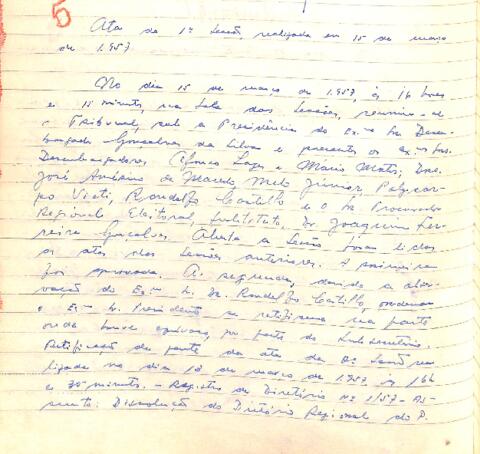 5
Ata da 1ª Sessão, realizada em 15 de março
de 1.957
No dia 15 de março de 1.957, às 16 horas
e 15 minutos, na Sala das Sessões, reuniu-se
o Tribunal, sob a Presidência do Ex.mo Sr. Desem-
bargador Gonçalves da Silva e presentes os Ex.mos Srs.
Desembargadores Afonso Lages e Mário Matos; Drs.
José Américo de Macedo, Melo Júnior, Policar-
po Vioti, Rondolfo Castilho e o Sr. Procurador
Regional Eleitoral, Substituto, Dr. Joaquim Fer-
reira Gonçalves. Aberta a Sessão foram lidas
as atas das Sessões anteriores. A primeira
foi aprovada. A segunda, devido a obser-
vação do Ex.mo Sr. Dr. Rondolfo Castilho, ordenou
o Ex.mo Sr. Presidente se retificasse na parte
onde houve equívoco, por parte do
Retificação de parte da ata da Sessão rea-
lizada no dia de março de 1.957 às 16h
e 30 minutos. - Registro de Diretório Nº 1/57 - As-
sunto: Dissolução do Diretório Regional do P.